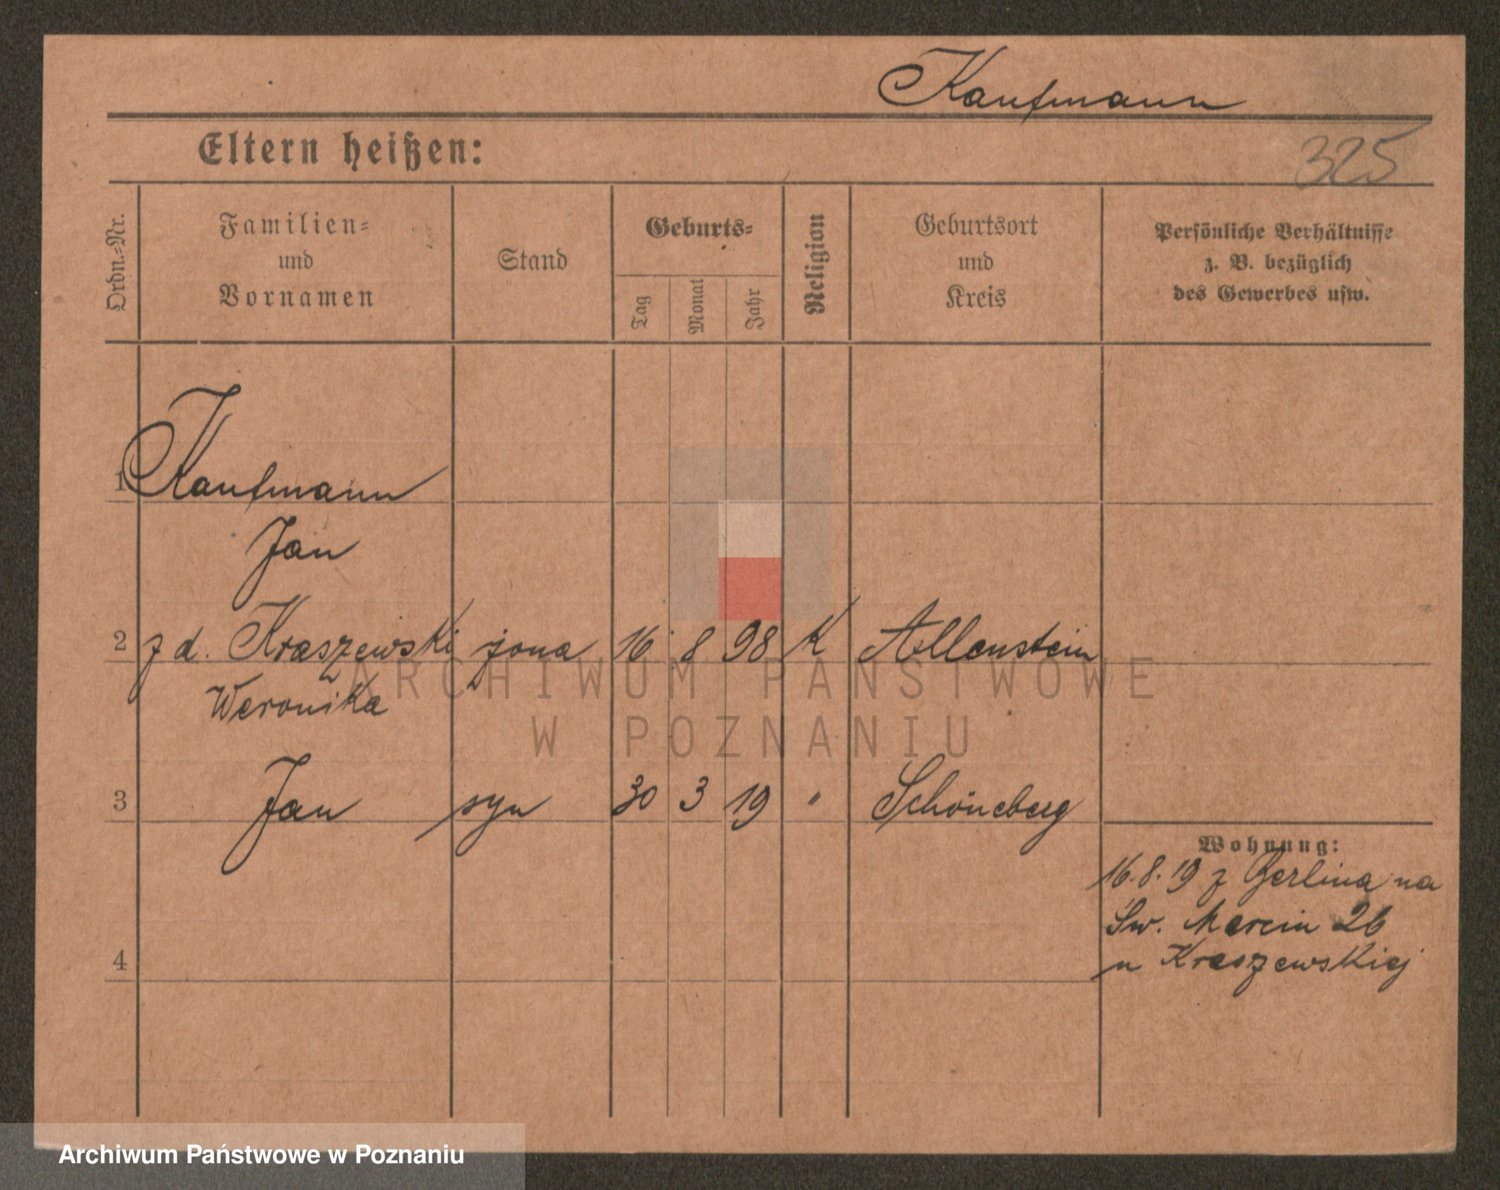 Kaufmann
Eltern heißen:
325
Ordn.-Nr.
Familien-
und
Vornamen
Stand
Geburts-
Tag
Monat
Jahr
Religion
Geburtsort
und
Kreis
Persönliche Verhältnisse
z. B. bezüglich
des Gewerbes usw.
1 Kaufmann
Jan
2 z d. Kraszewski żona 16 8 98 K Allenstein
Weronika
3 Jan syn 30 3 19 " Schöneberg
Wohnung:
16.8.19 z Berlina na
Św. Marcin 26
u Kraszewskiej
4
ARCHIWUM PAŃSTWOWE
W POZNANIU
Archiwum Państwowe w Poznaniu